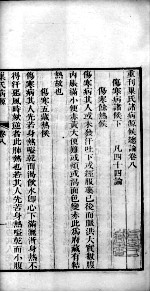 重刊巢氏諸病源候總論卷八
傷寒病諸候下 凡四十四論
傷寒餘熱候
傷寒病其人或未發汗吐下或經服藥已後而脈洪大實數腹
內脹滿小便赤黃大便難或煩或渴面色變赤此為腑臟有結
熱故也
傷寒五臟熱候
傷寒病其人先苦身熱嗌乾而渴飲水即心下滿洒淅身熱不
得汗惡風時欬逆者此肺熱也若其人先苦身熱嗌乾而小腹
巢氏病源 卷八